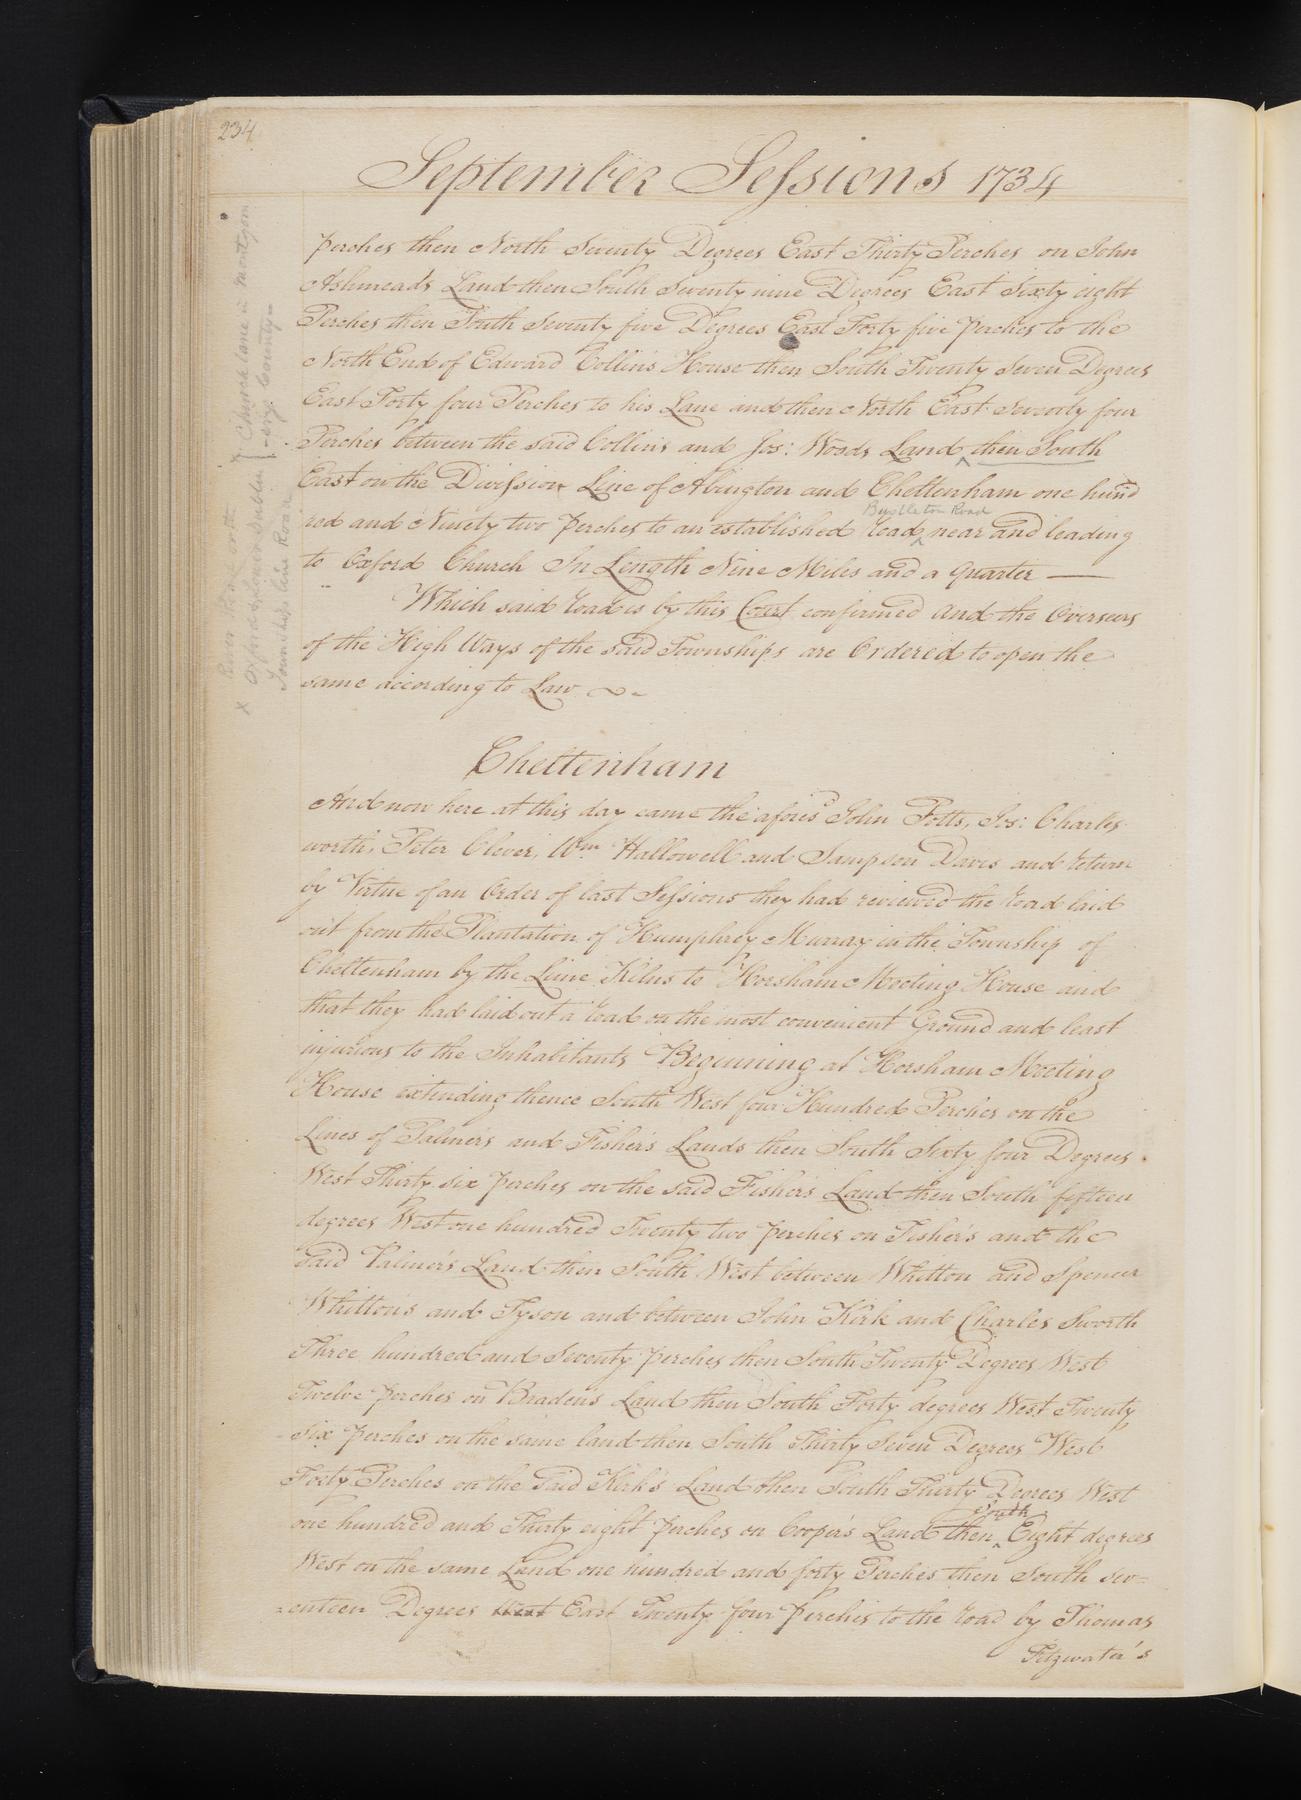 234
September Sessions 1734
perches then North Seventy Degrees East Thirty Perches on John
Ashmeads Land then South Seventy nine Degrees East Sixty eight
Perches then South Seventy five Degrees East Forty five perches to the
North End of Edward Collins House then South Twenty Seven Degrees
East Forty four Perches to his Lane and then North East Seventy four
Perches between the said Collins and Jos: Woods Land then South
East on the Division Line of Abington and Cheltenham one hund
Bustleton Road
red and Ninety two perches to an established road near and leading
to Oxford Church In Length Nine Miles and a quarter —
Which said road is by this Court confirmed and the Overseers
of the High Ways of the said Townships are Ordered to open the
same according to Law
Church lane in Montgom
-ery County=
Oxford & Lower Dublin
Township line Road
Cheltenham
And now here at this day came the afores'd John Potts, Jos: Charles
worth, Peter Clever, Wm Hallowell and Sampson Davis and return
by Virtue of an Order of last Sessions they had reviewed the road laid
out from the Plantation of Humphrey Murray in the Township of
Cheltenham by the Lime Kilns to Horsham Meeting House and
that they had laid out a road on the most convenient Ground and least
injurious to the Inhabitants Beginning at Horsham Meeting
House extending thence South West four Hundred Perches on the
Lines of Palmers and Fisher's Lands then South Sixty four Degrees
West Thirty six perches on the said Fishers Land then South fifteen
degrees West one hundred Twenty two perches on Fisher's and the
Said Palmer's Land then South West between Whitton and Spencer
Whitton's and Tyson and between John Kirk and Charles Sworth
Three hundred and Seventy perches then South Twenty Degrees West
Twelve perches on Braden's Land then South Forty degrees West Twenty
Six perches on the same land then South Thirty Seven Degrees West
Forty Perches on the Said Kirk's Land then South Thirty Degrees West
South
one hundred and Thirty eight perches on Cooper's Land then Eight degrees
West on the same Land one hundred and forty Perches then South sev=
=enteen Degrees West East Twenty four perches to the road by Thomas
Fitzwater's